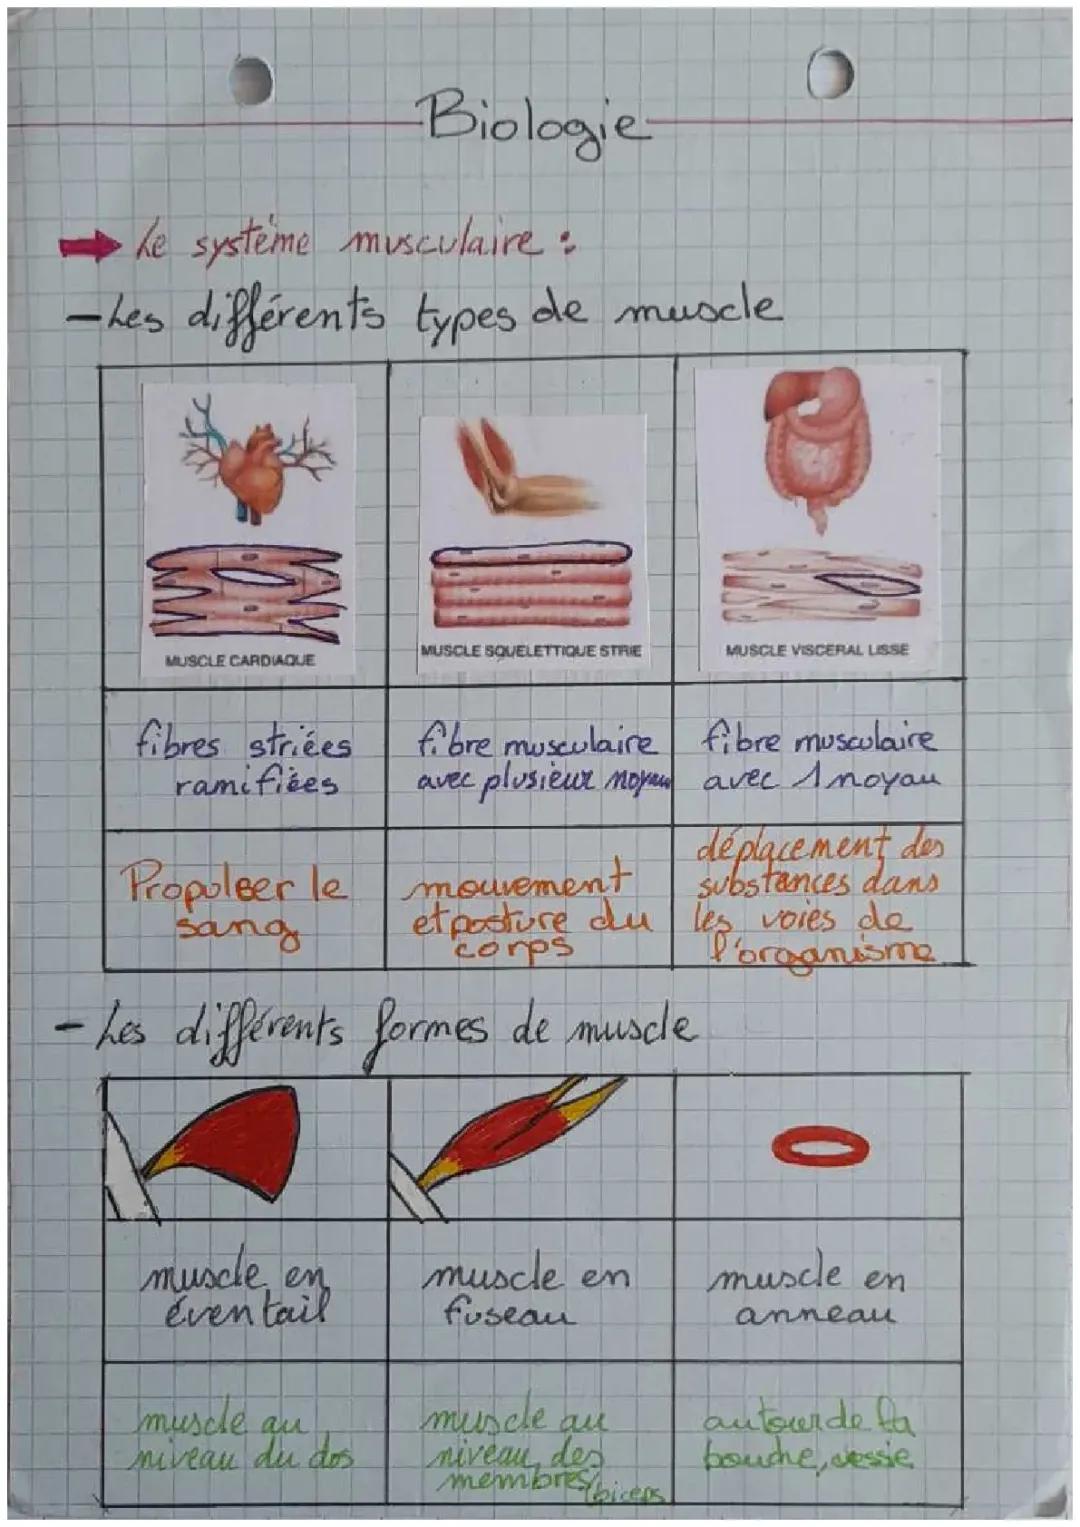 Biologie
Le système musculaire :
- Les différents types de muscle
MUSCLE CARDIAQUE
MUSCLE SQUELETTIQUE STRIE
MUSCLE VISCERAL LISSE
fibres striées
ramifiées
fibre musculaire
avec plusieux noyau
fibre musculaire
avec 1 noyau
Propulser le
sang
mouvement
et posture du
corps
déplacement des
substances dans
les voies de
l'organisme
- Les différents formes de muscle
muscle en
éventail
muscle en
fuseau
muscle en
anneau
muscle au
niveau du dos
muscle au
niveau des
membres/biceps
autour de la
bouche, vessie